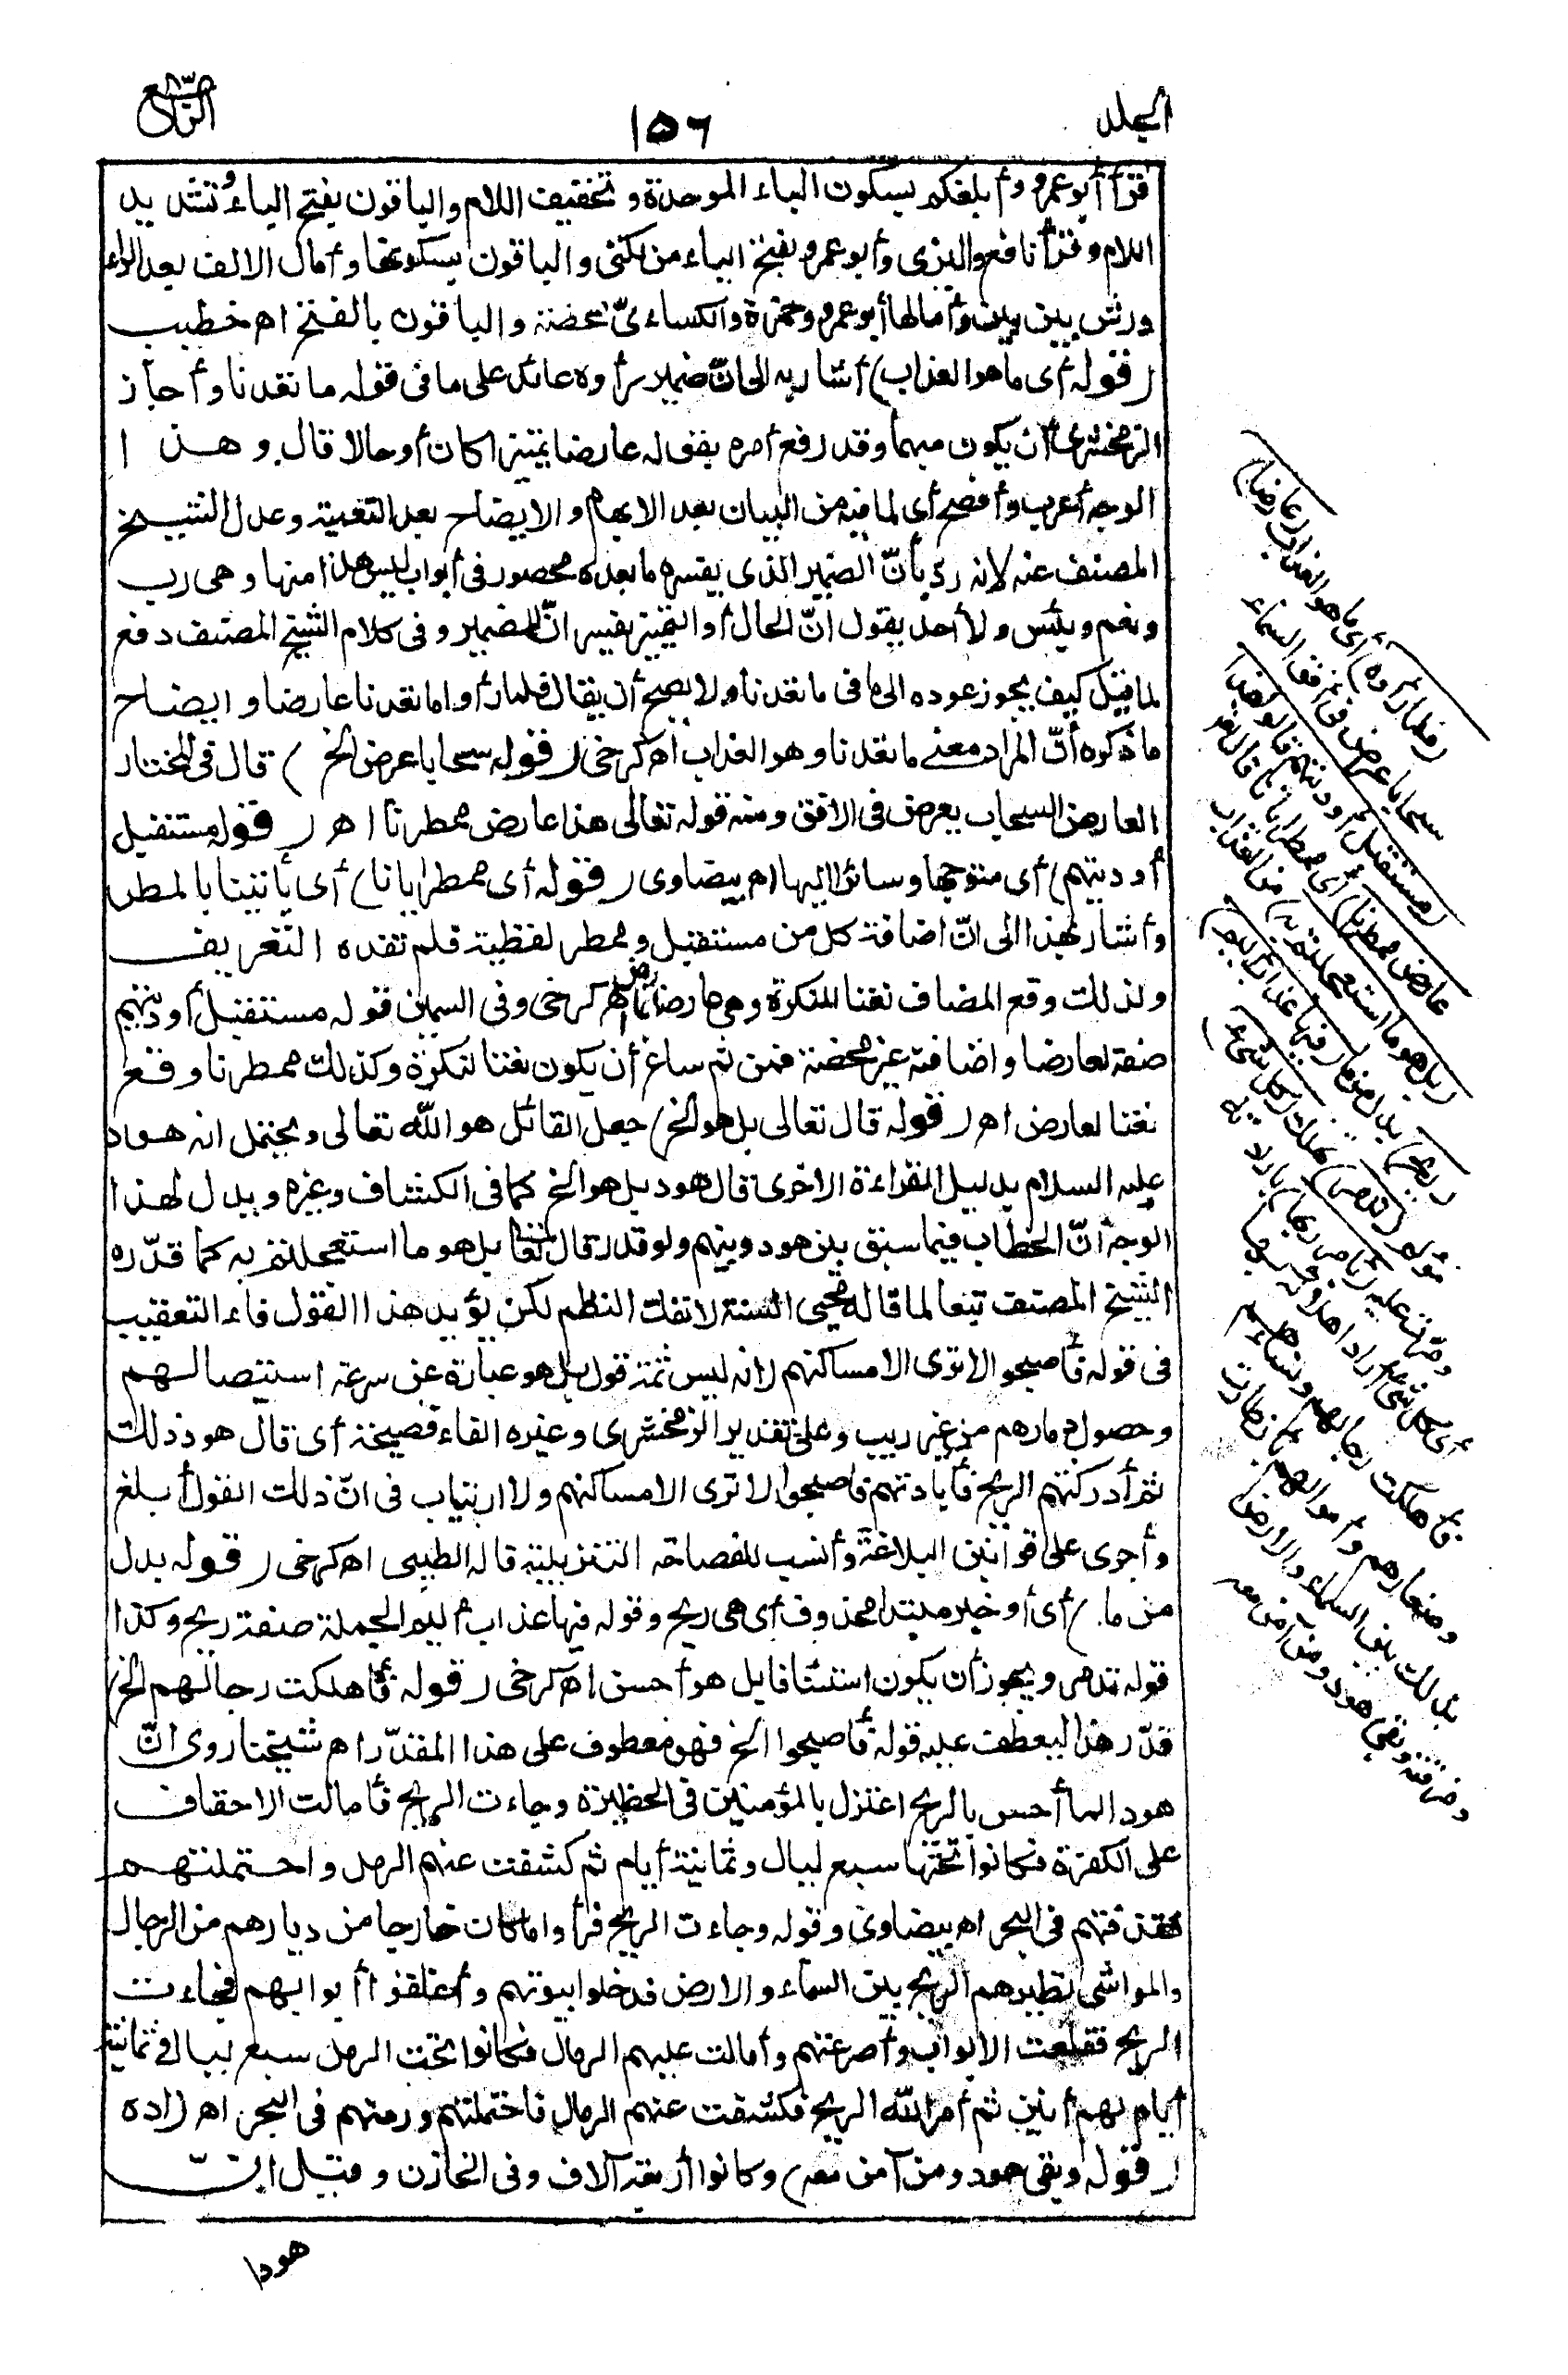 الجلد
١٥٦
الرابع
قرأ أبو عمرو وأبلغكم بسكون الباء الموحدة وتخفيف اللام والباقون بفتح الباء وتشديد
اللام وقرأ نافع والبزى وأبو عمرو بفتح الياء من لكنى والباقون بسكونها وأمال الالف بعد الراء
ورش بين بين وأمالها أبو عمرو وحمزة والكسائىّ محضة والباقون بالفتح اه خطيب
(قوله أى ما هو العذاب) أشار به الى انّ ضمير رأوه عائد على ما فى قوله ما تعدنا وأجاز
الزمخشرى أن يكون مبهما وقد رفع أمره بقوله عارضا تمييزا كان أو حالا قال وهذا
الوجه أعرب وأفصح أى لما فيه من البيان بعد الابهام والايضاح بعد التعمية وعدل الشيخ
المصنف عنه لانه ردّ بأنّ الضمير الذى يفسره ما بعده محصور فى أبواب ليس هذا منها وهى رب
ونعم وبئس ولا أحد يقول انّ الحال أو التمييز يفسر انّ للضمير وفى كلام الشيخ المصنف دفع
لما قيل كيف يجوز عوده الى ما فى ما تعدنا ولا يصح أن يقال فلما رأوا ما تعدنا عارضا وايضاح
ما ذكره أنّ المراد معنى ما تعدنا وهو العذاب اه كرخى (قوله سحابا عرض الخ) قال فى المختار
العارض السحاب يعرض فى الافق ومنه قوله تعالى هذا عارض ممطرنا اه (قوله مستقبل
أوديتهم) أى متوجها وسائرا اليها اه بيضاوى (قوله أى ممطر ايانا) أى يأتينا بالمطر
وأشار بهذا الى انّ اضافة كل من مستقبل وممطر لفظية فلم تفده التعريف
ولذلك وقع المضاف نعتا للنكرة وهى عارضا اه كرخى وفى السمين قوله مستقبل أوديتهم
صفة لعارضا واضافته غير محضة فمن ثم ساغ أن يكون نعتا لنكرة وكذلك ممطرنا وقع
نعتا لعارض اه (قوله قال تعالى بل هو الخ) جعل القائل هو الله تعالى ويحتمل انه هود
عليه السلام بدليل القراءة الاخرى قال هود بل هو الخ كما فى الكشاف وغيره ويدل لهذا
الوجه أنّ الخطاب فيما سبق بين هود وبينهم ولو قدر قال تعالى بل هو ما استعجلتم به كما قدّره
الشيخ المصنف تبعا لما قاله محيى السنة لانفك النظم لكن يؤيد هذا القول فاء التعقيب
فى قوله فأصبحوا لا ترى الا مساكنهم لانه ليس ثمة قول بل هو عبارة عن سرعة استئصالهم
وحصول دمارهم من غير ريب وعلى تقدير الزمخشرى وغيره الفاء فصيحة أى قال هود ذلك
ثم أدركتهم الريح فأبادتهم فأصبحوا لا ترى الا مساكنهم ولا ارتياب فى انّ ذلك القول أبلغ
وأجرى على قوانين البلاغة وأنسب للفصاحة التنزيلية قاله الطيبى اه كرخى (قوله بدل
من ما) أى أو خبر مبتدا محذوف أى هى ريح وقوله فيها عذاب أليم الجملة صفة ريح وكذا
قوله تدمر ويجوز أن يكون استئنافا بل هو أحسن اه كرخى (قوله فأهلكت رجالهم الخ)
قدّر هذا ليعطف عليه قوله فأصبحوا الخ فهو معطوف على هذا المقدّر اه شيخنا روى انّ
هودا لما أحس بالريح اعتزل بالمؤمنين فى الحظيرة وجاءت الريح فأمالت الاحقاف
على الكفرة فكانوا تحتها سبع ليال وثمانية أيام ثم كشفت عنهم الرمل واحتملتهم
فقذفتهم فى البحر اه بيضاوى وقوله وجاءت الريح فرأوا ما كان خارجا من ديارهم من الرجال
والمواشى تطيرهم الريح بين السماء والارض فدخلوا بيوتهم وأغلقوا أبوابهم فجاءت
الريح فقلعت الابواب وأصرعتهم وأمالت عليهم الرمال فكانوا تحت الرمل سبع ليال وثمانية
أيام لهم أنين ثم أمر الله الريح فكشفت عنهم الرمال فاحتملتهم ورمتهم فى البحر اه زاده
(قوله وبقى هود ومن آمن معه) وكانوا أربعة آلاف وفى الخازن وقيل انّ
هودا
(فلما رأوه) أى ما هو العذاب (عارضا)
سحابا عرض فى أفق السماء
(مستقبل أوديتهم قالوا هذا
عارض ممطرنا) أى ممطر ايانا قال تعالى
(بل هو ما استعجلتم به) من العذاب
(ريح) بدل من ما (فيها عذاب أليم)
(تدمر) تهلك (كل شىء)
مرّت عليه (بأمر ربها) بارادته
أى كل شىء أراد اهلاكه بها
فأهلكت رجالهم ونساءهم
وصغارهم وأموالهم بأن طارت
بذلك بين السماء والارض
ومزقته وبقى هود ومن آمن معه